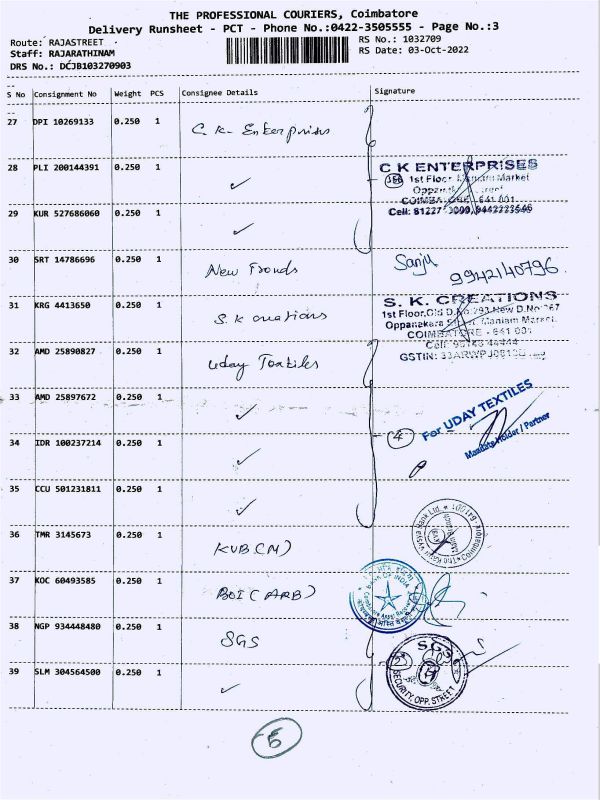 THE PROFESSIONAL COURIERS, Coimbatore
Delivery Runsheet - PCT - Phone No.:0422-3505555 - Page No.:3
Route: RAJASTREET
RS No.: 1032709
Staff: RAJARATHINAM
RS Date: 03-Oct-2022
DRS No.: DCJB103270903
S No Consignment No Weight PCS Consignee Details Signature
27 DPI 10269133 0.250 1 C. K. Enterprises
28 PLI 200144391 0.250 1 ✓
C K ENTERPRISES
1st Floor, Market
29 KUR 527686060 0.250 1 ✓
COIMBATORE - 641 001
Cell:
30 SRT 14786696 0.250 1 New Trends
Sanju 9942140796
31 KRG 4413650 0.250 1 S. K creations
S. K. CREATIONS
1st Floor, Old D.No:293 New D.No
Oppanakara Maniam Market,
COIMBATORE - 641 001
Cell:
GSTIN:
32 AMD 25890827 0.250 1 Uday Textiles
33 AMD 25897672 0.250 1 ✓
34 IDR 100237214 0.250 1 ✓
4
For UDAY TEXTILES
Mandate Holder / Partner
35 CCU 501231811 0.250 1 ✓
36 TMR 3145673 0.250 1 KVB (M)
37 KOC 60493585 0.250 1 BOI (ARB)
38 NGP 934448480 0.250 1 SGS
39 SLM 304564500 0.250 1 ✓
2
SGS
SECURITY, OPP. STREET
5